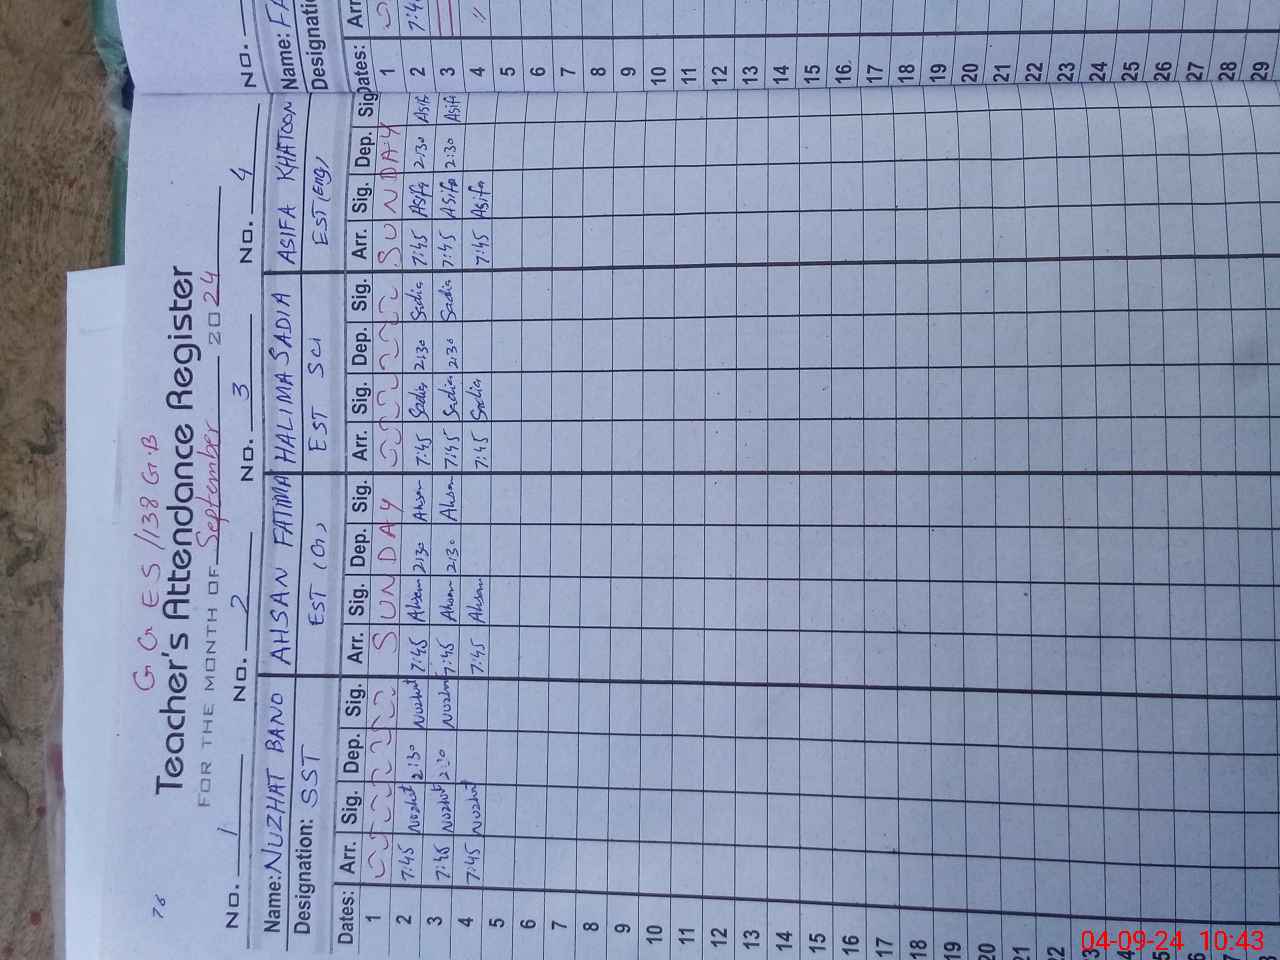 G G E S /138 G.B
Teacher's Attendance Register
FOR THE MONTH OF September 2024
78
No. 1 No. 2 No. 3 No. 4 No.
Name: NUZHAT BANO AHSAN FATIMA HALIMA SADIA ASIFA KHATOON Name: FA
Designation: SST EST (G) EST SCI EST (Eng) Designati
Dates: Arr. Sig. Dep. Sig. Arr. Sig. Dep. Sig. Arr. Sig. Dep. Sig. Arr. Sig. Dep. Sig Dates: Arr
1 S U N D A Y S U N D A Y 1
2 7:45 Nuzhat 2:30 Nuzhat 7:45 Ahsan 2:30 Ahsan 7:45 Sadia 2:30 Sadia 7:45 Asifa 2:30 Asifa 2 7:4
3 7:45 Nuzhat 2:30 Nuzhat 7:45 Ahsan 2:30 Ahsan 7:45 Sadia 2:30 Sadia 7:45 Asifa 2:30 Asifa 3
4 7:45 Nuzhat 7:45 Ahsan 7:45 Sadia 7:45 Asifa 4 "
5 5
6 6
7 7
8 8
9 9
10 10
11 11
12 12
13 13
14 14
15 15
16 16
17 17
18 18
19 19
20 20
21 21
22 22
23 23
24 24
25 25
26 26
27 27
28 28
29
04-09-24 10:43